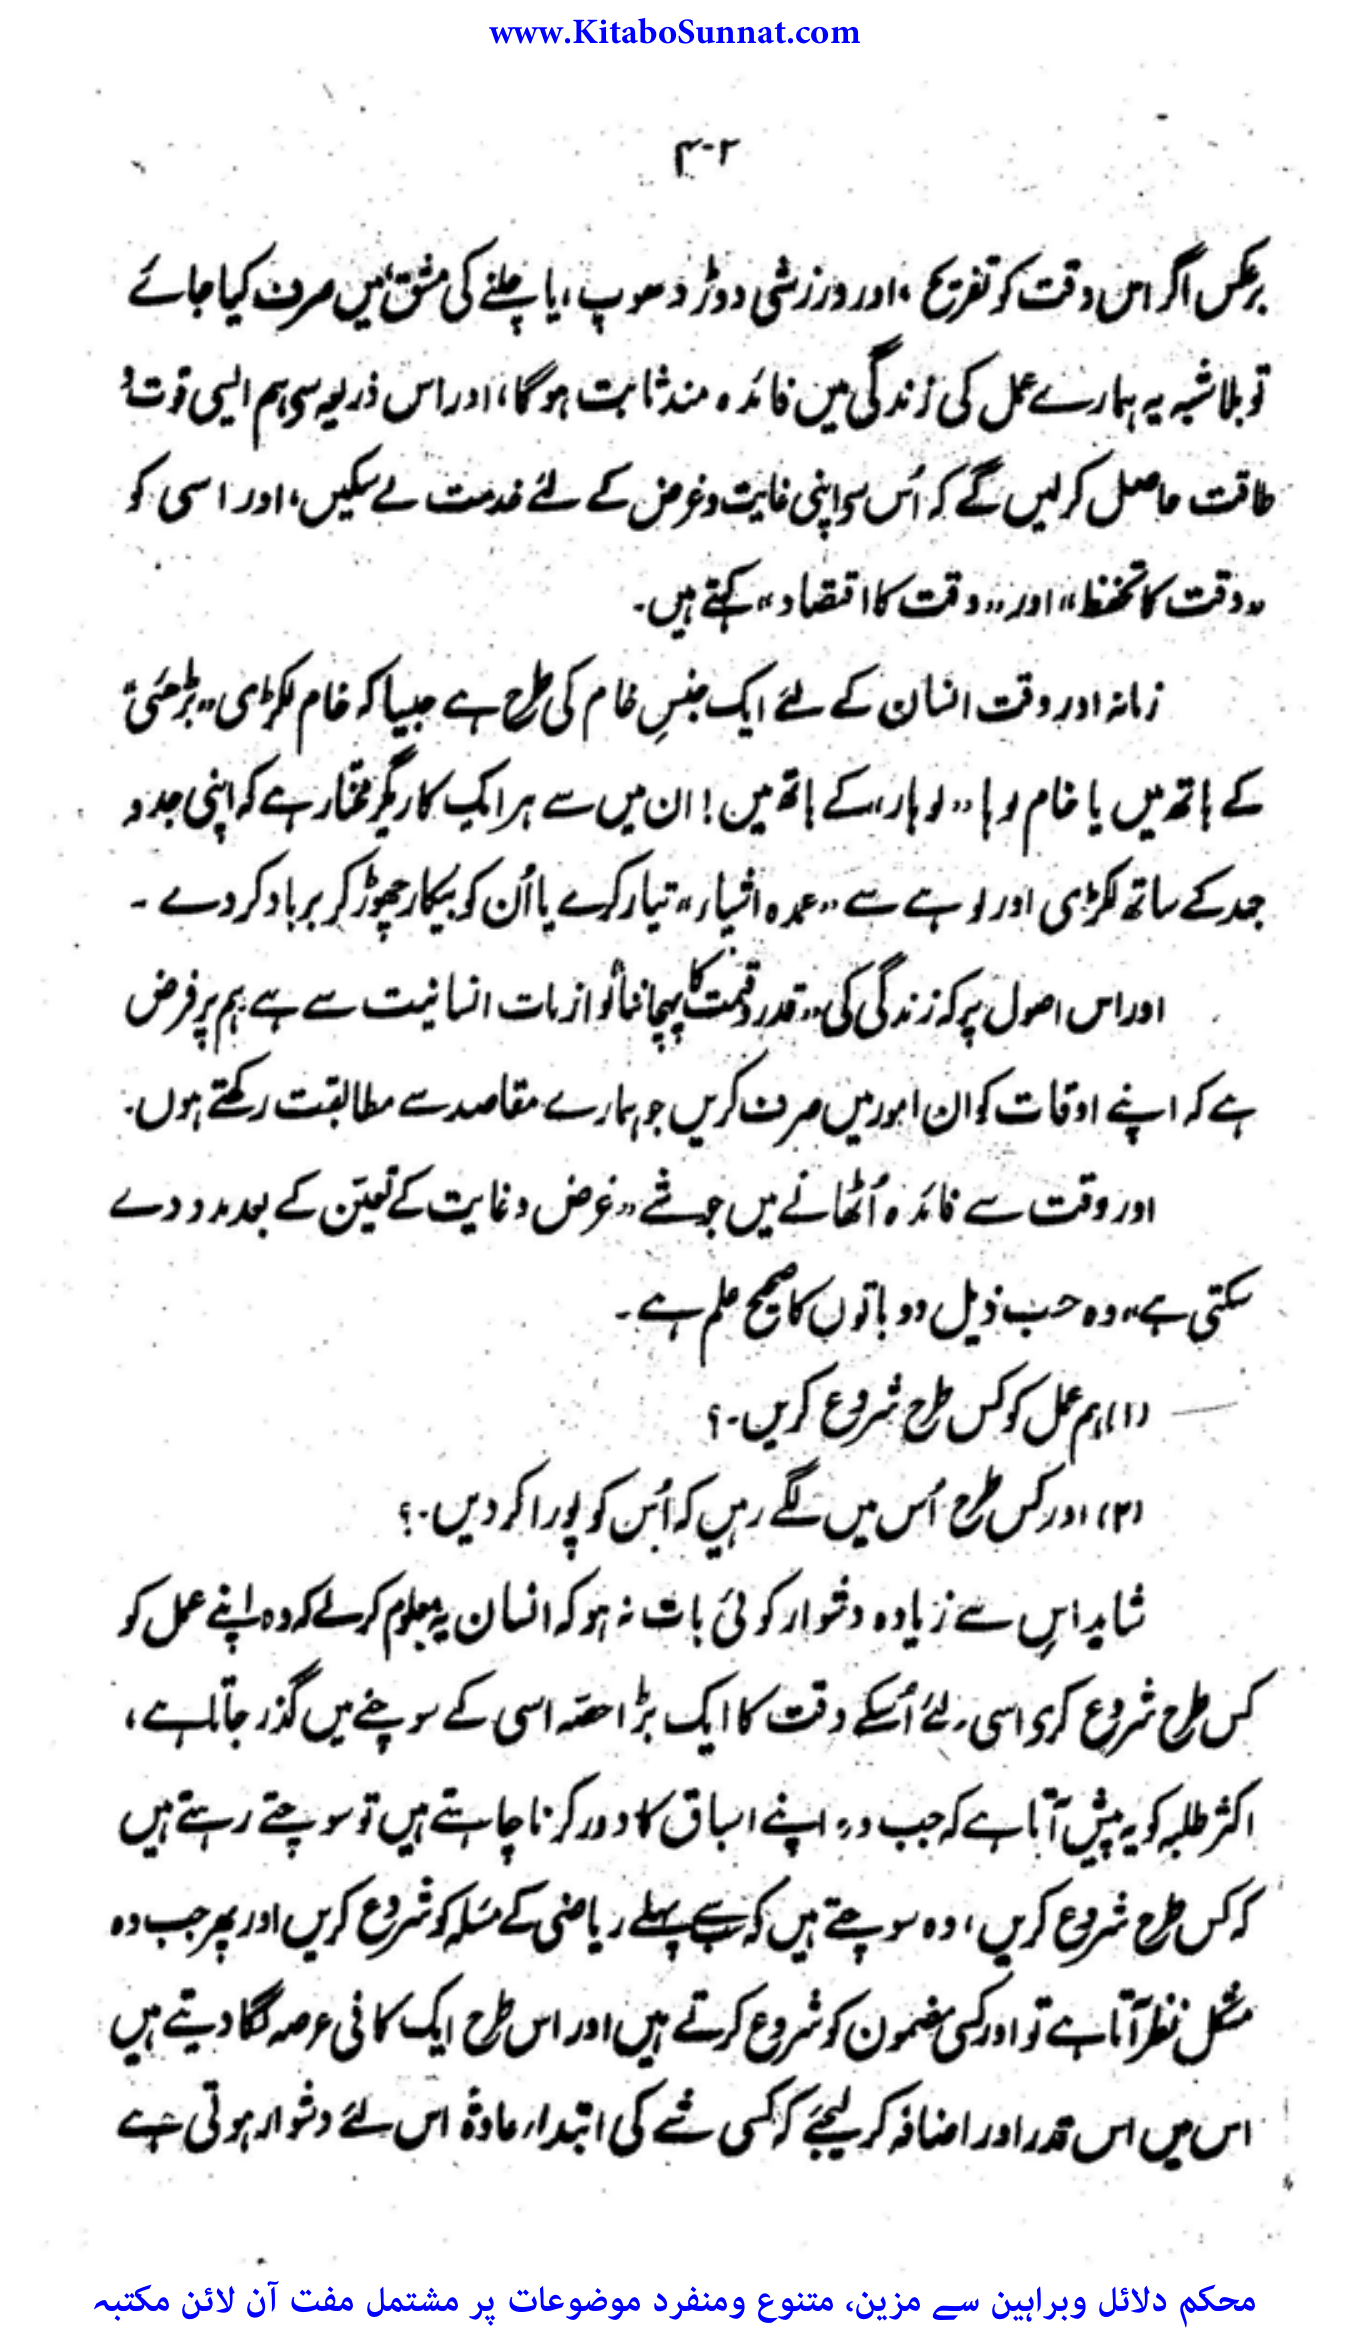 www.KitaboSunnat.com
۴۰۲
برعکس اگر اس وقت کو تفریح، اور ورزشی دوڑ دھوپ، یا چلنے کی مشق میں صرف کیا جائے
تو بلاشبہ یہ ہمارے عمل کی زندگی میں فائدہ مند ثابت ہوگا، اور اس ذریعہ سے ہم ایسی قوت و
طاقت حاصل کرلیں گے کہ اُس سے اپنی غایت و غرض کے لئے خدمت لے سکیں، اور اسی کو
"وقت کا تحفظ" اور "وقت کا اقتصاد" کہتے ہیں۔
زمانہ اور وقت انسان کے لئے ایک جنسِ خام کی طرح ہے جیسا کہ خام لکڑی "بڑھئی"
کے ہاتھ میں یا خام لوہا "لوہار" کے ہاتھ میں! ان میں سے ہر ایک کاریگر مختار ہے کہ اپنی جد و
جہد کے ساتھ لکڑی اور لوہے سے "عمدہ اشیاء" تیار کرے یا اُن کو بیکار چھوڑ کر برباد کردے۔
اور اس اصول پر کہ زندگی کی "قدر و قیمت کا پہچاننا" لوازمات انسانیت سے ہے ہم پر فرض
ہے کہ اپنے اوقات کو ان امور میں صرف کریں جو ہمارے مقاصد سے مطابقت رکھتے ہوں۔
اور وقت سے فائدہ اُٹھانے میں جو شے "غرض و غایت کے تعیّن کے بعد مدد دے
سکتی ہے" وہ حسب ذیل دو باتوں کا صحیح علم ہے۔
(۱) ہم عمل کو کس طرح شروع کریں۔؟
(۲) اور کس طرح اُس میں لگے رہیں کہ اُس کو پورا کردیں۔؟
شاید اس سے زیادہ دشوار کوئی بات نہ ہو کہ انسان یہ معلوم کرلے کہ وہ اپنے عمل کو
کس طرح شروع کرے اسی لئے اُسکے وقت کا ایک بڑا حصّہ اسی کے سوچنے میں گذر جاتا ہے،
اکثر طلبہ کو یہ پیش آتا ہے کہ جب وہ اپنے اسباق کا دور کرنا چاہتے ہیں تو سوچتے رہتے ہیں
کہ کس طرح شروع کریں، وہ سوچتے ہیں کہ سب سے پہلے ریاضی کے مسئلہ کو شروع کریں اور پھر جب وہ
مشکل نظر آتا ہے تو اور کسی مضمون کو شروع کرتے ہیں اور اس طرح ایک کافی عرصہ لگا دیتے ہیں
اس میں اس قدر اور اضافہ کرلیجئے کہ کسی شے کی ابتداء عادۃً اس لئے دشوار ہوتی ہے
محکم دلائل وبراہین سے مزین، متنوع ومنفرد موضوعات پر مشتمل مفت آن لائن مکتبہ